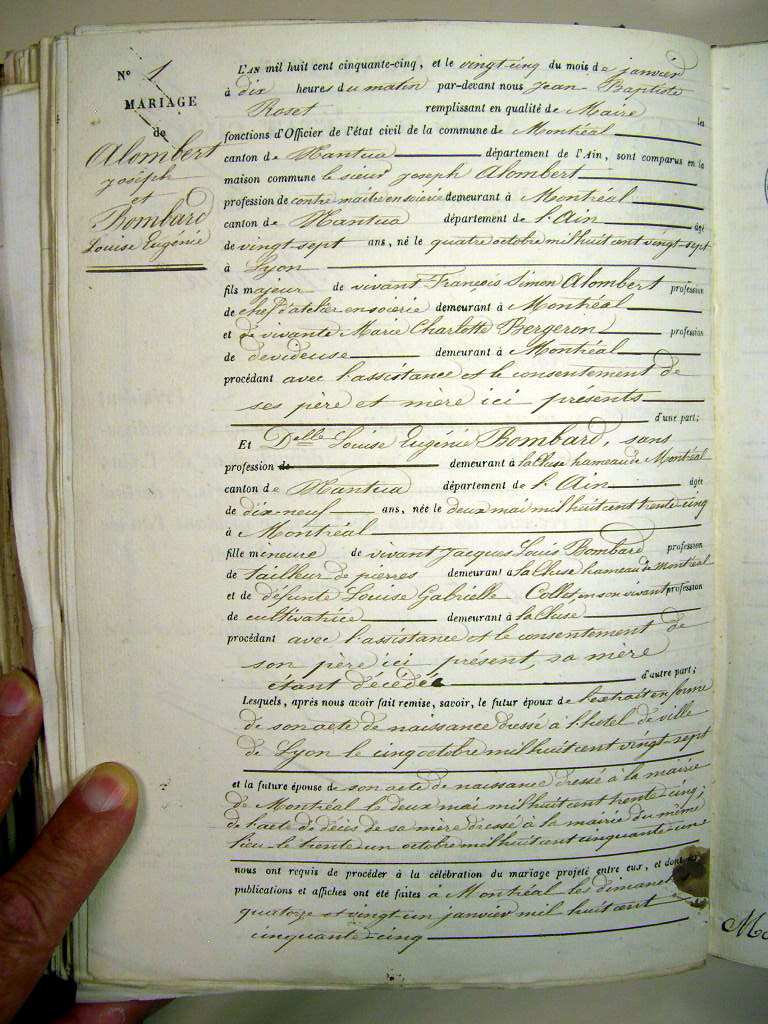 N° 1
MARIAGE
de
Alombert
joseph
et
Bombard
Louise Eugénie
L'AN mil huit cent cinquante-cinq, et le vingt-cinq du mois de janvier
à dix heures du matin par-devant nous Jean Baptiste
Roset remplissant en qualité de Maire les
fonctions d'Officier de l'état civil de la commune de Montréal
canton de Nantua département de l'Ain, sont comparus en la
maison commune le sieur joseph Alombert
profession de contre maitre en soierie demeurant à Montréal
canton de Nantua département de l'Ain âgé
de vingt-sept ans, né le quatre octobre mil huit cent vingt-sept
à Lyon
fils majeur de vivant François Simon Alombert profession
de chef d'atelier en soierie demeurant à Montréal
et de vivante Marie Charlotte Bergeron profession
de devideuse demeurant à Montréal
procédant avec l'assistance et le consentement de
ses père et mère ici présents
d'une part;
Et Delle Louise Eugénie Bombard, sans
profession de demeurant à la Cluse hameau de Montréal
canton de Nantua département de l'Ain âgée
de dix-neuf ans, née le deux mai mil huit cent trente-cinq
à Montréal
fille mineure de vivant Jacques Louis Bombard profession
de tailleur de pierres demeurant à la Cluse hameau de Montréal
et de défunte Louise Gabrielle Collet en son vivant profession
de cultivatrice demeurant à la Cluse
procédant avec l'assistance et le consentement de
son père ici présent, sa mère
étant décédée d'autre part;
Lesquels, après nous avoir fait remise, savoir, le futur époux de l'extrait en forme
de son acte de naissance dressé à l'hotel de ville
de Lyon le cinq octobre mil huit cent vingt-sept
et la future épouse de son acte de naissance dressé à la mairie
de Montréal le deux mai mil huit cent trente-cinq;
de l'acte de décès de sa mère dressé à la mairie du même
lieu le trente un octobre mil huit cent cinquante-un
nous ont requis de procéder à la célébration du mariage projeté entre eux, et dont les
publications et affiches ont été faites à Montréal les dimanches
quatorze et vingt un janvier mil huit cent
cinquante-cinq